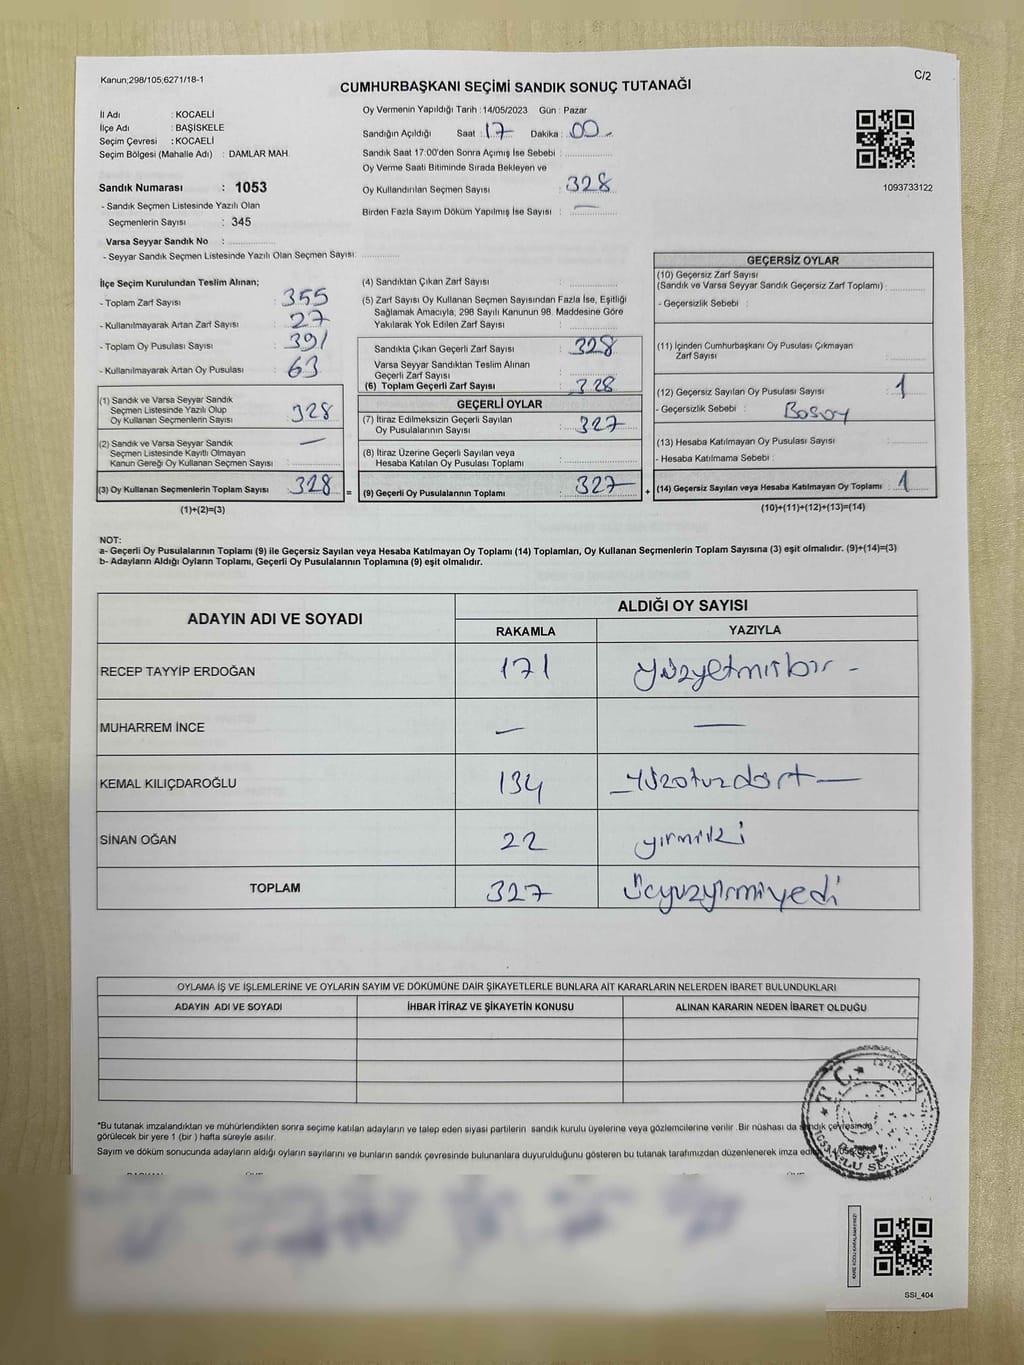 Kanun;298/105;6271/18-1
C/2
CUMHURBAŞKANI SEÇİMİ SANDIK SONUÇ TUTANAĞI
İl Adı : KOCAELİ
İlçe Adı : BAŞİSKELE
Seçim Çevresi : KOCAELİ
Seçim Bölgesi (Mahalle Adı) : DAMLAR MAH.
Sandık Numarası : 1053
- Sandık Seçmen Listesinde Yazılı Olan
Seçmenlerin Sayısı : 345
Varsa Seyyar Sandık No :
- Seyyar Sandık Seçmen Listesinde Yazılı Olan Seçmen Sayısı:
Oy Vermenin Yapıldığı Tarih : 14/05/2023 Gün : Pazar
Sandığın Açıldığı Saat : 17 Dakika : 00
Sandık Saat 17:00'den Sonra Açımış İse Sebebi :
Oy Verme Saati Bitiminde Sırada Bekleyen ve
Oy Kullandırılan Seçmen Sayısı : 328
Birden Fazla Sayım Döküm Yapılmış İse Sayısı : —
1093733122
İlçe Seçim Kurulundan Teslim Alınan;
- Toplam Zarf Sayısı : 355
- Kullanılmayarak Artan Zarf Sayısı : 27
- Toplam Oy Pusulası Sayısı : 391
- Kullanılmayarak Artan Oy Pusulası : 63
(1) Sandık ve Varsa Seyyar Sandık
Seçmen Listesinde Yazılı Olup
Oy Kullanan Seçmenlerin Sayısı : 328
(2) Sandık ve Varsa Seyyar Sandık
Seçmen Listesinde Kayıtlı Olmayan
Kanun Gereği Oy Kullanan Seçmen Sayısı : —
(3) Oy Kullanan Seçmenlerin Toplam Sayısı : 328
(1)+(2)=(3)
(4) Sandıktan Çıkan Zarf Sayısı :
(5) Zarf Sayısı Oy Kullanan Seçmen Sayısından Fazla İse, Eşitliği
Sağlamak Amacıyla, 298 Sayılı Kanunun 98. Maddesine Göre
Yakılarak Yok Edilen Zarf Sayısı :
Sandıkta Çıkan Geçerli Zarf Sayısı : 328
Varsa Seyyar Sandıktan Teslim Alınan
Geçerli Zarf Sayısı :
(6) Toplam Geçerli Zarf Sayısı : 328
GEÇERLİ OYLAR
(7) İtiraz Edilmeksizin Geçerli Sayılan
Oy Pusulalarının Sayısı : 327
(8) İtiraz Üzerine Geçerli Sayılan veya
Hesaba Katılan Oy Pusulası Toplamı :
= (9) Geçerli Oy Pusulalarının Toplamı : 327 +
GEÇERSİZ OYLAR
(10) Geçersiz Zarf Sayısı
(Sandık ve Varsa Seyyar Sandık Geçersiz Zarf Toplamı) :
- Geçersizlik Sebebi :
(11) İçinden Cumhurbaşkanı Oy Pusulası Çıkmayan
Zarf Sayısı :
(12) Geçersiz Sayılan Oy Pusulası Sayısı : 1
- Geçersizlik Sebebi :
(13) Hesaba Katılmayan Oy Pusulası Sayısı :
- Hesaba Katılmama Sebebi :
(14) Geçersiz Sayılan veya Hesaba Katılmayan Oy Toplamı : 1
(10)+(11)+(12)+(13)=(14)
NOT:
a- Geçerli Oy Pusulalarının Toplamı (9) ile Geçersiz Sayılan veya Hesaba Katılmayan Oy Toplamı (14) Toplamları, Oy Kullanan Seçmenlerin Toplam Sayısına (3) eşit olmalıdır. (9)+(14)=(3)
b- Adayların Aldığı Oyların Toplamı, Geçerli Oy Pusulalarının Toplamına (9) eşit olmalıdır.
ADAYIN ADI VE SOYADI
ALDIĞI OY SAYISI
RAKAMLA YAZIYLA
RECEP TAYYİP ERDOĞAN 171 yüzyetmişbir -
MUHARREM İNCE — —
KEMAL KILIÇDAROĞLU 134 —yüzotuzdört—
SİNAN OĞAN 22 yirmiiki
TOPLAM 327 üçyüzyirmiyedi
OYLAMA İŞ VE İŞLEMLERİNE VE OYLARIN SAYIM VE DÖKÜMÜNE DAİR ŞİKAYETLERLE BUNLARA AİT KARARLARIN NELERDEN İBARET BULUNDUKLARI
ADAYIN ADI VE SOYADI İHBAR İTİRAZ VE ŞİKAYETİN KONUSU ALINAN KARARIN NEDEN İBARET OLDUĞU
*Bu tutanak imzalandıktan ve mühürlendikten sonra seçime katılan adayların ve talep eden siyasi partilerin sandık kurulu üyelerine veya gözlemcilerine verilir .Bir nüshası da sandık çevresinde
görülecek bir yere 1 (bir ) hafta süreyle asılır.
Sayım ve döküm sonucunda adayların aldığı oyların sayılarını ve bunların sandık çevresinde bulunanlara duyurulduğunu gösteren bu tutanak tarafımızdan düzenlenerek imza
T.C.
SSİ_404